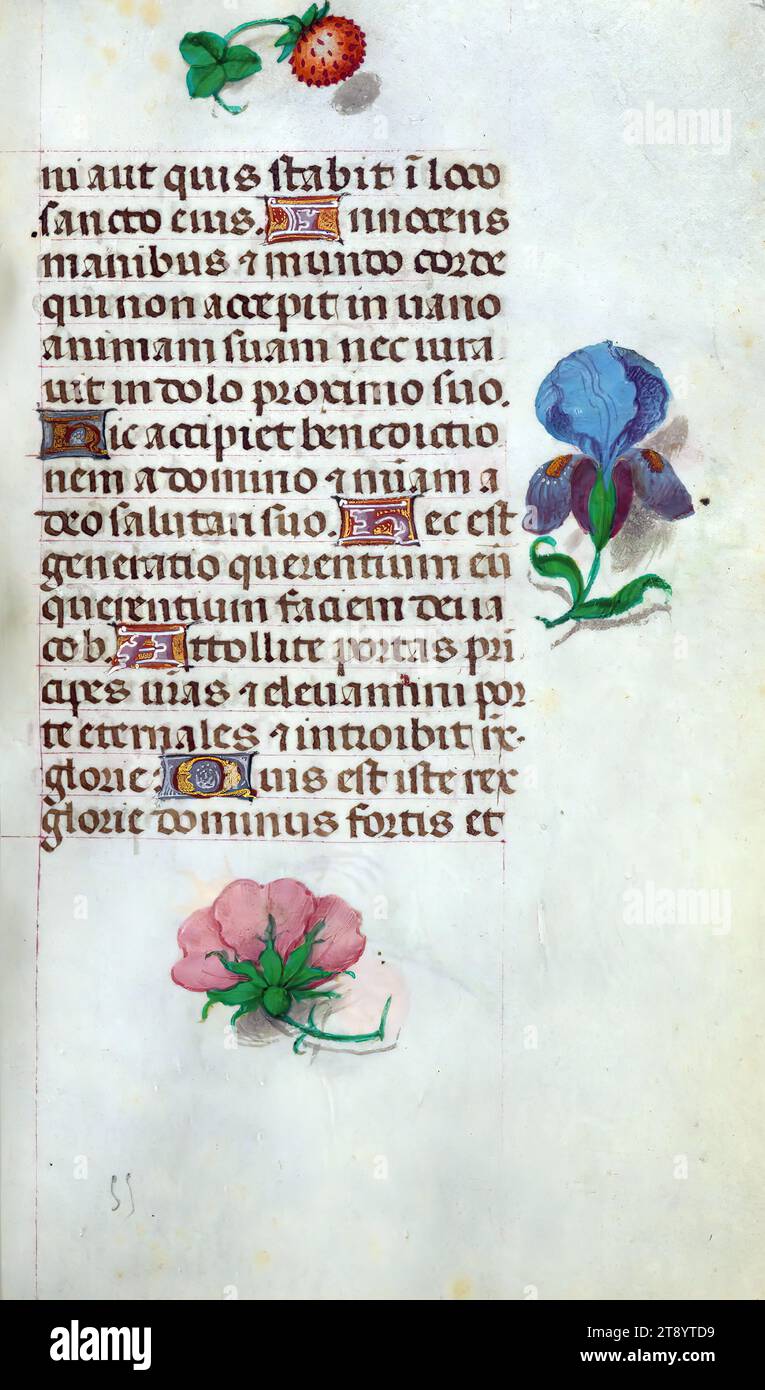 ni aut quis stabit ī loco
sancto eius. Innocens
manibus ⁊ mundo corde
qui non accepit in uano
animam suam nec iura
uit in dolo proximo suo.
Hic accipiet benedictio
nem a domino ⁊ mīam a
deo salutari suo. Hec est
generatio querentium eū
querentium faciem dei ia
cob. Attollite portas prī
cipes vr̄as ⁊ eleuamini por
te eternales ⁊ introibit rex
glorie. Quis est iste rex
glorie dominus fortis et
55
alamy
alamy
alamy
Image ID: 2T8YTD9
www.alamy.com